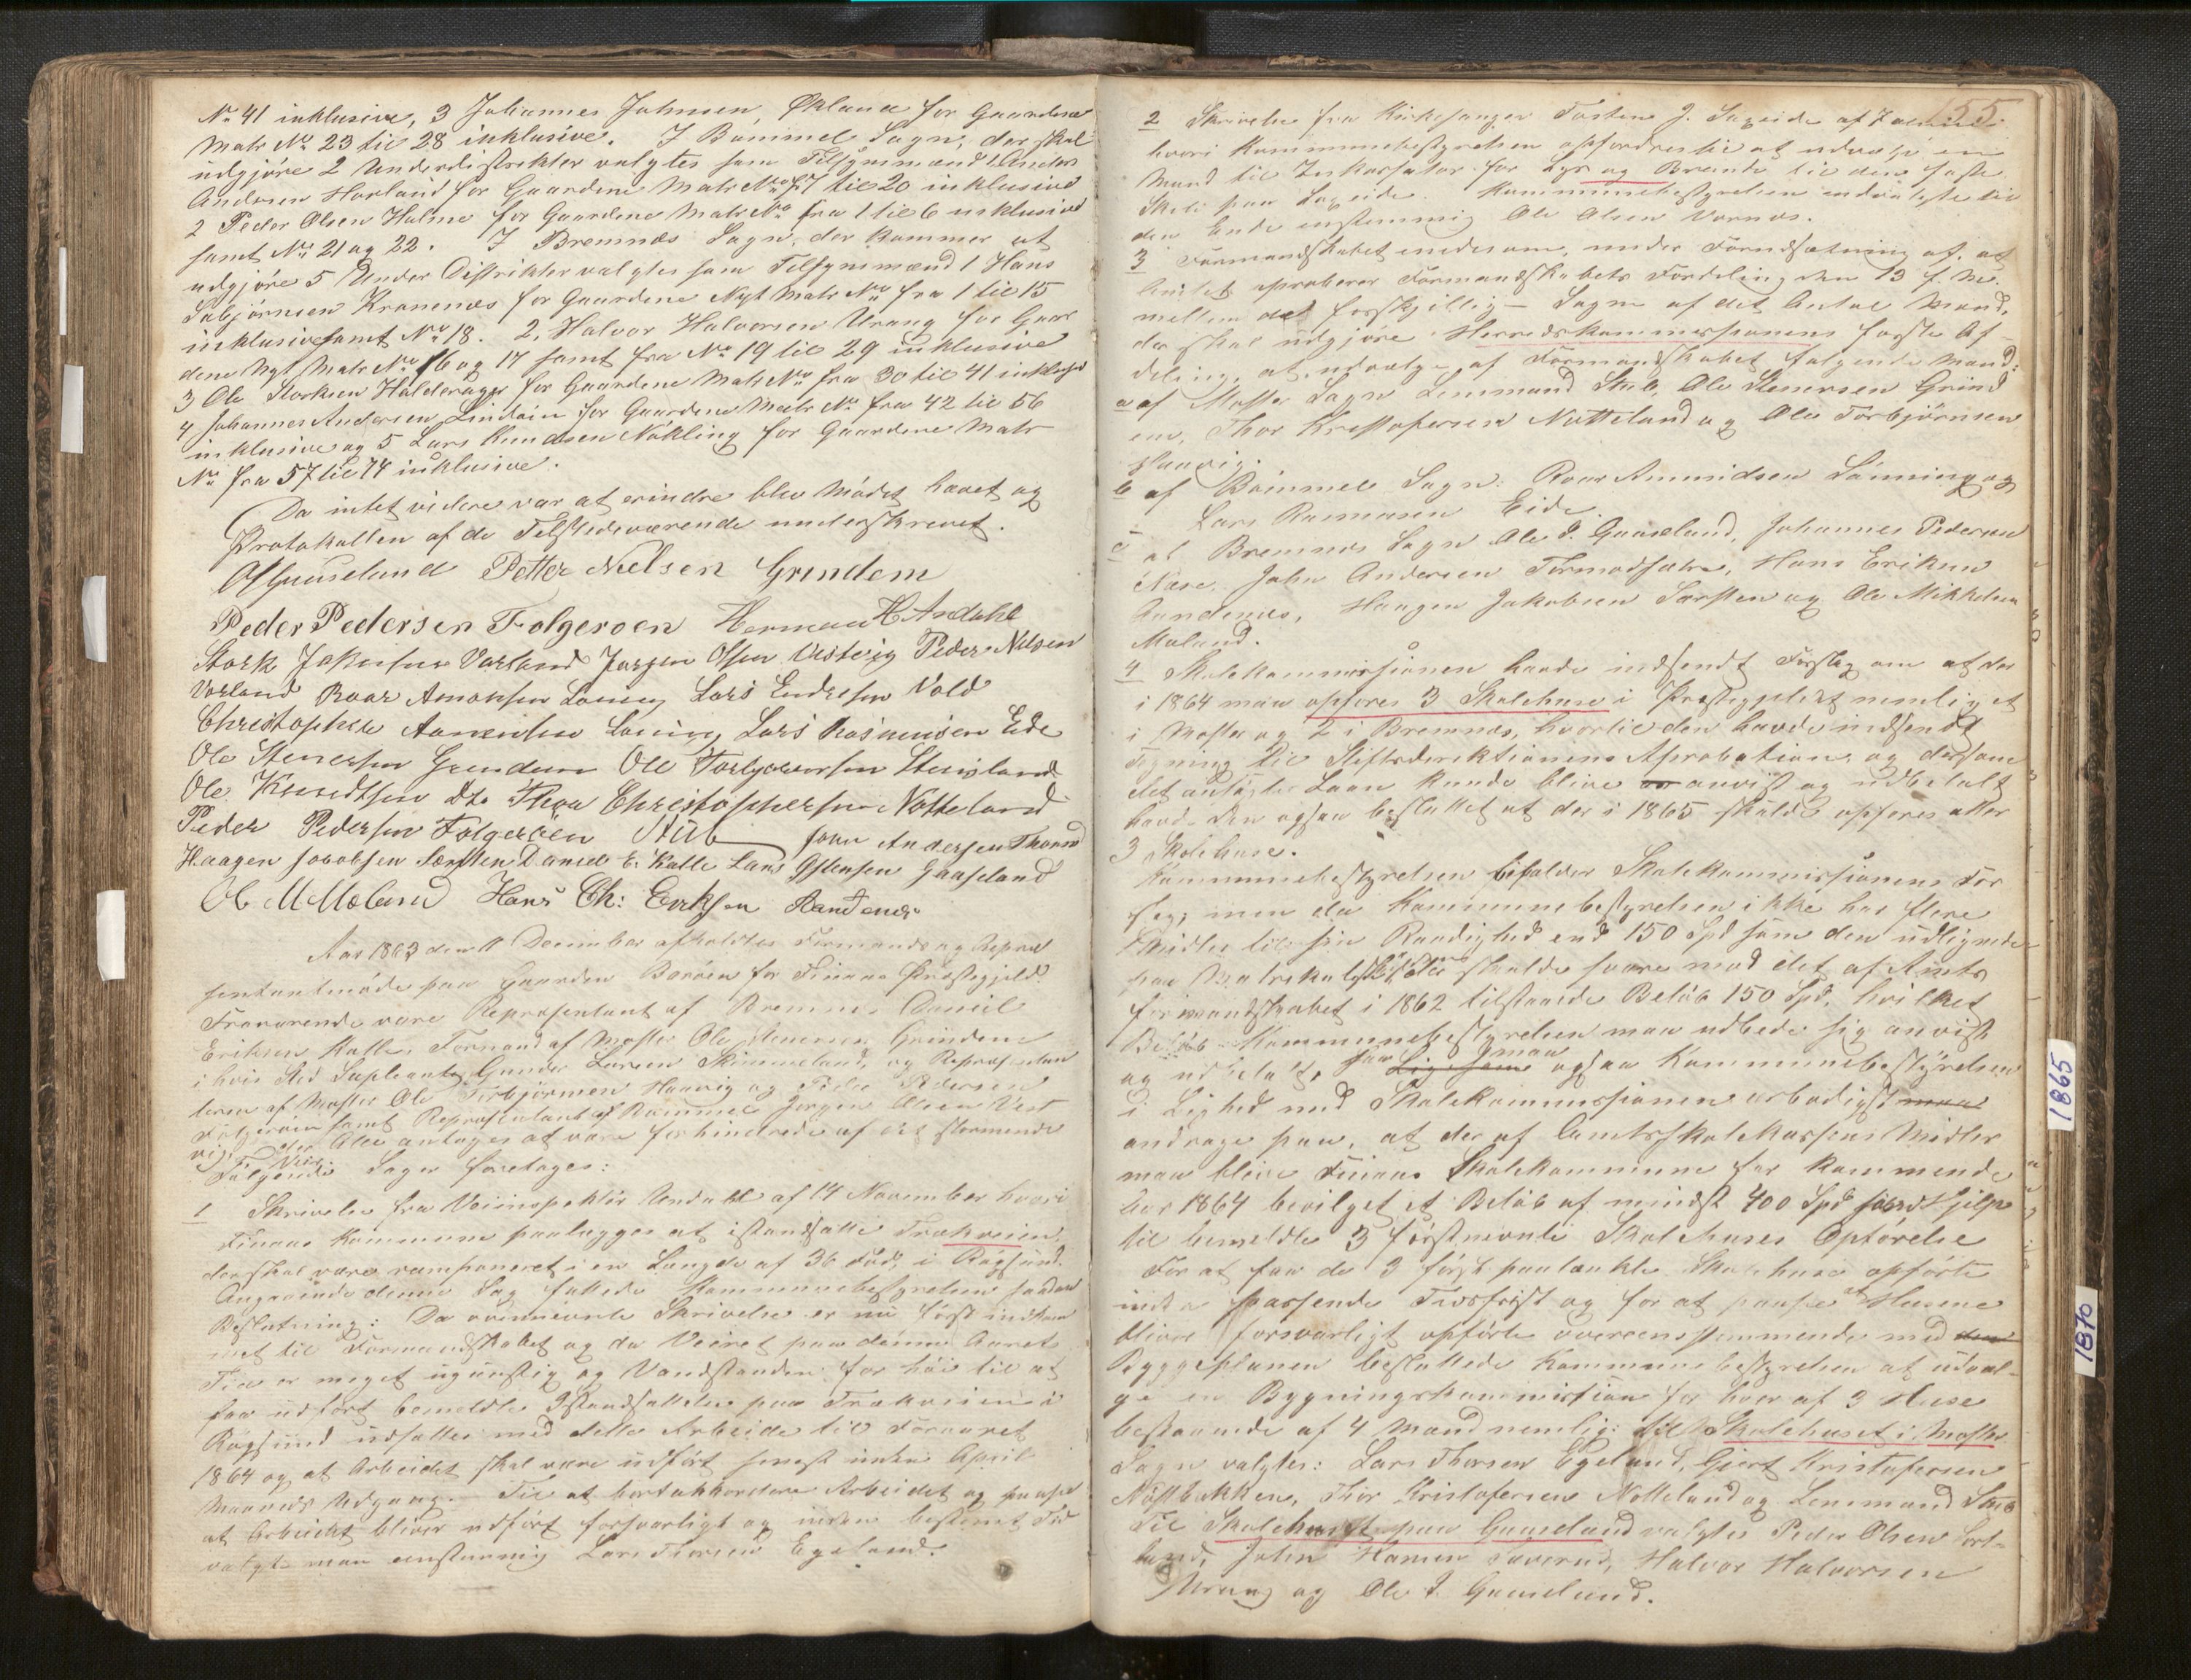 No 41 inklusive, 3 Johannes Johnsen Økland for Gaardene
Matr No 23 til 28 inklusive. I Bømmel Sogn, der skal
udgjøre 2 Underdistrikter valgtes som Tilsynsmænd 1 Anders
Andersen Hovland for Gaardene Matr No 7 til 20 inklusive
2 Peder Olsen Holme for Gaardene Matr No fra 1 til 6 inklusive
samt No 21 og 22. I Bremnæs Sogn, der kommer at
udgjøre 5 Under Distrikter valgtes som Tilsynsmænd 1 Hans
Sebjørnsen Kranenæs for Gaardene Nyt Matr No fra 1 til 15
inklusive samt No 18. 2, Halvor Halvorsen Urang for Gaar
dene Nyt Matr No 16 og 17 samt fra No 19 til 29 inklusive
3 Ole Storksen Halderager for Gaardene Matr No fra 30 til 41 inklusive
4 Johannes Andersen Lindøen for Gaardene Matr No fra 42 til 56
inklusive og 5 Lars Knudsen Nøkling for Gaardene Matr
No fra 57 til 74 inklusive.
Da intet videre var at erindre blev Mødet hævet og
Protokollen af de Tilstedeværende underskrevet.
O Gaaseland Petter Nielsen Grindem
Peder Pedersen Folgeroen Herman H Andahl
Stork Jakobsen Vorland Jørgen Olsen Vestvig Peder Nilsen
Vorland Roar Amonsen Løning Lars Endresen Vold
Christopher Løning Lars Rasmusen Eide
Ole Stenersen Grindem Ole Torbjørnsen Steinsland
Ole Knudtsen do Thor Christophersen Notteland
Peder Pedersen Folgerøen Stub John Andersen Thormod
Haagen Jacobsen Sørsten Daniel E. Kalle Lars Gaaseland
Ole M Mæland Hans Ch: Eriksen Aandenes
Aar 1863 den 11 December afholdtes Formands og Repræ
sentantmøde paa Gaarden Børøen for Finaas Præstegjeld.
Fraværende vare Repræsentant af Bremnæs Daniel
Eriksen Kalle, Formand af Moster Ole Stenersen Grindem
i hvis Sted Supleanten Gunder Larsen Skimmeland, og Repræsentan
terne af Moster Ole Torbjørnsen Haavig og Peder Pedersen
Folgerøen samt Repræsentant af Bømmel Jørgen Olsen Vest
vig. Alle antages at være forhindrede af det stormende
Veir.
Følgende Sager foretoges:
1 Skrivelse fra Veiinspektør Undahl af 14 November hvori
Finaas Kommune paalægges at istandsætte Trækveien
der skal være ramponeret i en Længde af 36 Fod, i Røgsund.
Angaaende denne Sag fattede Kommunebestyrelsen saadan
Beslutning: Da ovennævnte Skrivelse er nu først indkom
met til Formandskabet og da Veiret paa denne Aarets
Tid er meget ugunstig og Vandstanden for høi til at
faa udført bemeldte Istandsættelse paa Trækveien i
Røgsund udsættes med dette Arbeide til Foraaret
1864 og at Arbeidet skal være udført senest inden April
Maaneds Udgang. Til at bortakkordere Arbeidet og paase
at Arbeidet bliver udført forsvarligt og inden bestemt Tid
valgte man enstemmig Lars Thorsen Egeland.
155
2 Skrivelse fra Kirkesanger Tosten J. Sageide af
hvori Kommunebestyrelsen opfordres til at udvælge en
Mand til Inkassator for Lys og Brænde til den faste
Skole paa Sageide. Kommunebestyrelsen udvalgte til
den Ende enstemmig Ole Olsen Vornæs.
3 Formandskabet enedes om, under Forudsætning af, at
Amtet aproberer Formandskabets Fordeling den 13 f. M.
mellem de forskjellige Sogne af det Antal Mænd,
der skal udgjøre Herredskommissionens første Af-
deling, at udvælge af Formandskabet følgende Mænd:
a af Moster Sogn Lensmand Stub, Ole Stenersen Grind
em, Thor Kristofersen Nøtteland og Ole Torbjørnsen
Haavig.
b af Bømmel Sogn: Roar Amundsen Lønning og
Lars Rasmusen Eide.
c af Bremnes Sogn Ole J. Gaaseland, Johannes Pedersen
Næse, John Andersen Tormodsæter, Hans Eriksen
Aandenæs, Haagen Jakobsen Sørsten og Ole Mikkelsen
Mæland.
4 Skolekommissionen havde indsendt Forslag om at der
i 1864 maa opføres 3 Skolehuse i Præstegjeldet nemlig et
i Moster og 2 i Bremnæs, hvortil den havde indsendt
Tegning til Stiftsdirektionens Aprobation, og dersom
det antagte Laan kunde blive anvist og udbetalt
havde den ogsaa besluttet at der i 1865 skulde opføres atter
3 Skolehuse.
Kommunebestyrelsen bifalder Skolekommissionens For
slag, men da Kommunebestyrelsen ikke har flere
Midler til sin Raadighed end 150 Spd som den udlignede
paa Matrikulskylden skulde svare mod det af Amts
formandskabet i 1862 tilstaaede Beløb 150 Spd. hvilket
Beløb Kommunebestyrelsen maa udbede sig anvist
og udbetalt, saa maa ogsaa Kommunebestyrelsen
i Lighed med Skolekommissionen ærbødigst
andrage paa, at der af Amtsskolekassens Midler
maa blive Finaas Skolekommune for kommende
Aar 1864 bevilget et Beløb af mindst 400 Spd som Hjelp
til bemeldte 3 førstnævnte Skolehuses Opførelse
For at faa de 3 først paatænkte Skolehuse opførte
inden passende Tidsfrist og for at paase at Husene
blive forsvarligt opførte overeensstemmende med
Byggeplanen besluttede Kommunebestyrelsen at udvæl-
ge en Bygningskommission for hver af 3 Huse
bestaaende af 4 Mænd nemlig: til Skolehuset i Moster
Sogn valgtes: Lars Thorsen Egeland, Gjert Kristofersen
Nøstbakken, Thor Kristofersen Notteland og Lensmand Stub
Til Skolehuset paa Gaaseland valgtes Peder Olsen
land, John Hansen, Halvor Halvorsen
Urang og Ole J. Gaaseland.
1865
1870